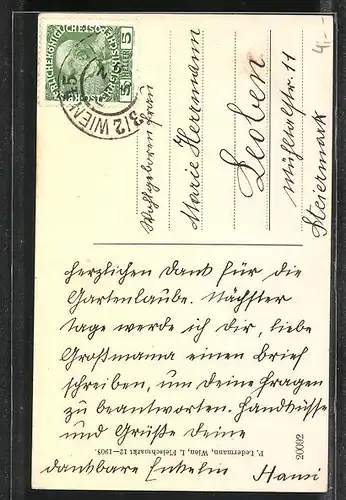 herzlichen Dank für die
Gartenlaube. Nächster
tage werde ich Dir, liebe
Großmama einen Brief
schreiben, um deine fragen
zu beantworten. Handküsse
und Grüße deine
dankbare Enkelin Hansi
Wohlgeboren Frau
Marie Herrmann
Leoben
Mühltalstr. 11
Steiermark
4,-
5 HELLER 5
3/2 WIEN
P. Ledermann, Wien, I. Fleischmarkt 12—1908.
20092